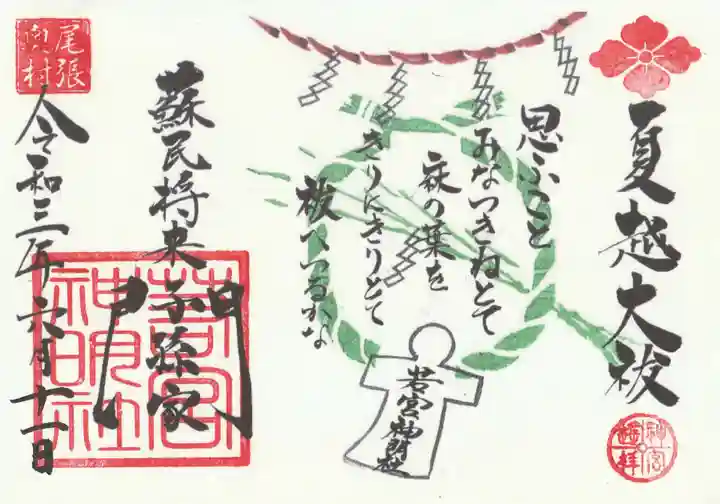 夏越大祓
思ふこと
みなつきねとて
麻の葉を
きりにきりとて
祓へつるかな
若宮神明社
蘇民将来子孫家門
令和三年六月十一日
尾張
奥村
若宮
神明社
神宮
遥拝